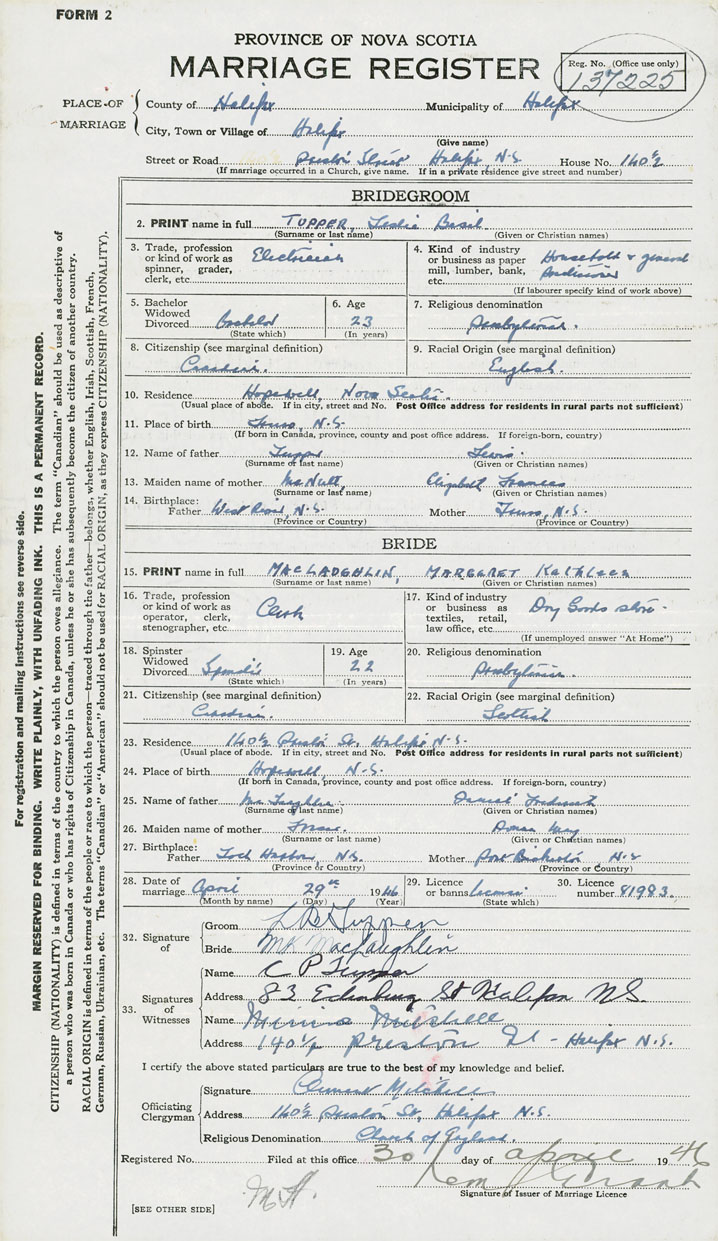 FORM 2
PROVINCE OF NOVA SCOTIA
MARRIAGE REGISTER
Reg. No. (Office use only)
137225
PLACE OF MARRIAGE
County of Halifax Municipality of Halifax
City, Town or Village of Halifax
(Give name)
Street or Road Preston Street Halifax N.S. House No. 140½
(If marriage occurred in a Church, give name. If in a private residence give street and number)
BRIDEGROOM
2. PRINT name in full TUPPER, Leslie Basil
(Surname or last name) (Given or Christian names)
3. Trade, profession or kind of work as spinner, grader, clerk, etc. Electrician
4. Kind of industry or business as paper mill, lumber, bank, etc. Household & general
(If labourer specify kind of work above)
5. Bachelor Widowed Divorced Bachelor
(State which)
6. Age 23
(In years)
7. Religious denomination Presbyterian.
8. Citizenship (see marginal definition) Canadian.
9. Racial Origin (see marginal definition) English.
10. Residence Hopewell, Nova Scotia.
(Usual place of abode. If in city, street and No. Post Office address for residents in rural parts not sufficient)
11. Place of birth Truro, N.S.
(If born in Canada, province, county and post office address. If foreign-born, country)
12. Name of father Tupper Lewis.
(Surname or last name) (Given or Christian names)
13. Maiden name of mother McNutt Elizabeth Frances
(Surname or last name) (Given or Christian names)
14. Birthplace: Father West River, N.S. Mother Truro, N.S.
(Province or Country) (Province or Country)
BRIDE
15. PRINT name in full MACLAUGHLIN, MARGARET Kathleen
(Surname or last name) (Given or Christian names)
16. Trade, profession or kind of work as operator, clerk, stenographer, etc. Clerk
17. Kind of industry or business as textiles, retail, law office, etc. Dry Goods store.
(If unemployed answer "At Home")
18. Spinster Widowed Divorced Spinster
(State which)
19. Age 22
(In years)
20. Religious denomination Presbyterian.
21. Citizenship (see marginal definition) Canadian.
22. Racial Origin (see marginal definition) Scottish
23. Residence 140½ Preston St. Halifax N.S.
(Usual place of abode. If in city, street and No. Post Office address for residents in rural parts not sufficient)
24. Place of birth Hopewell, N.S.
(If born in Canada, province, county and post office address. If foreign-born, country)
25. Name of father McLaughlin. Daniel Frederick
(Surname or last name) (Given or Christian names)
26. Maiden name of mother Fraser. May
(Surname or last name) (Given or Christian names)
27. Birthplace: Father Loch Harbor, N.S. Mother Port N.S
(Province or Country) (Province or Country)
28. Date of marriage April 29th 1946
(Month by name) (Day) (Year)
29. Licence or banns License
(State which)
30. Licence number 81983.
32. Signature of
Groom L B Tupper
Bride MK MacLaughlin
33. Signatures of Witnesses
Name C P Tupper
Address 83 Edinburg St Halifax NS.
Name Minnie Mitchell
Address 140½ Preston St - Halifax N.S.
I certify the above stated particulars are true to the best of my knowledge and belief.
Officiating Clergyman
Signature Clement Mitchell
Address 140½ Preston St, Halifax N.S.
Religious Denomination Church of England.
Registered No. Filed at this office 30 day of April 1946
Signature of Issuer of Marriage Licence
[SEE OTHER SIDE]
For registration and mailing instructions see reverse side.
MARGIN RESERVED FOR BINDING. WRITE PLAINLY, WITH UNFADING INK. THIS IS A PERMANENT RECORD.
CITIZENSHIP (NATIONALITY) is defined in terms of the country to which the person owes allegiance. The term "Canadian" should be used as descriptive of
a person who was born in Canada or who has rights of Citizenship in Canada, unless he or she has subsequently become the citizen of another country.
RACIAL ORIGIN is defined in terms of the people or race to which the person—traced through the father—belongs, whether English, Irish, Scottish, French,
German, Russian, Ukrainian, etc. The terms "Canadian" or "American" should not be used for RACIAL ORIGIN, as they express CITIZENSHIP (NATIONALITY).